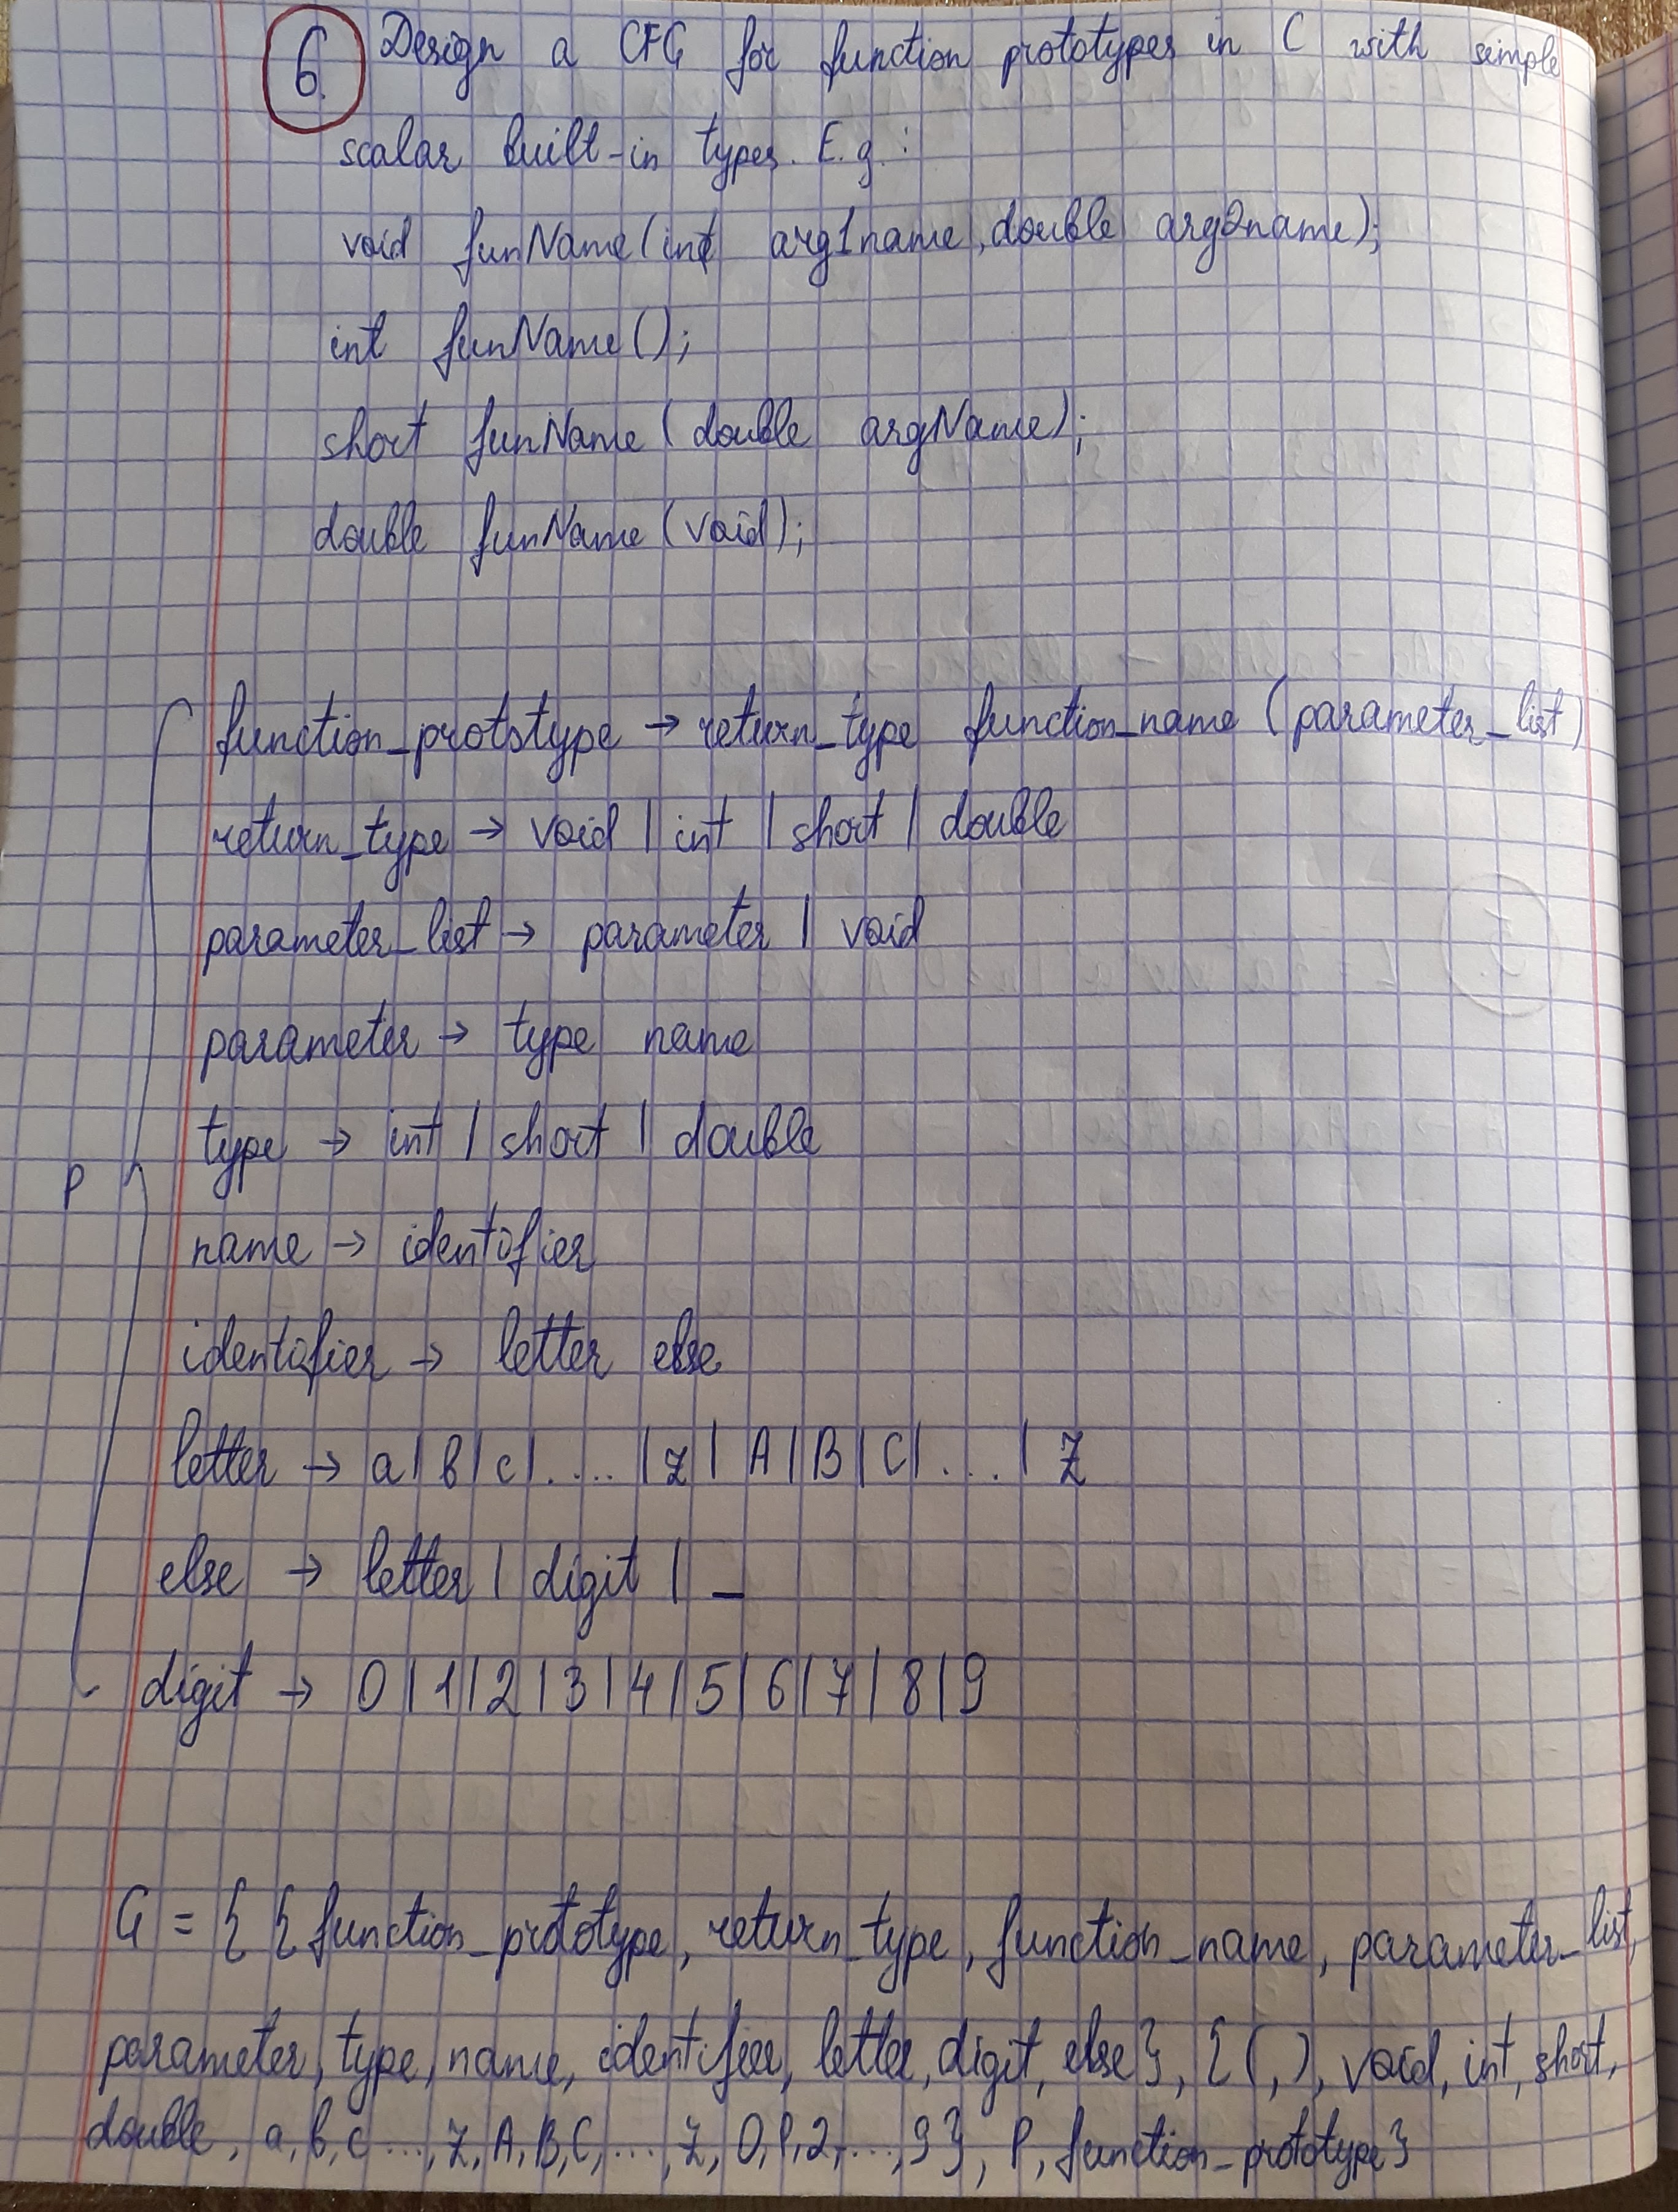 6. Design a CFG for function prototypes in C with simple
scalar built-in types. E.g.:
void funName(int arg1name, double arg2name);
int funName();
short funName(double argName);
double funName(void);
function_prototype → return_type function_name (parameter_list)
return_type → void | int | short | double
parameter_list → parameter | void
parameter → type name
type → int | short | double
P
name → identifier
identifier → letter else
letter → a | b | c | .... | z | A | B | C | .... | Z
else → letter | digit | _
digit → 0 | 1 | 2 | 3 | 4 | 5 | 6 | 7 | 8 | 9
G = { { function_prototype, return_type, function_name, parameter_list,
parameter, type, name, identifier, letter, digit, else }, { (, ), void, int, short,
double, a, b, c ..., z, A, B, C, ..., Z, 0, 1, 2, ..., 9 }, P, function_prototype }